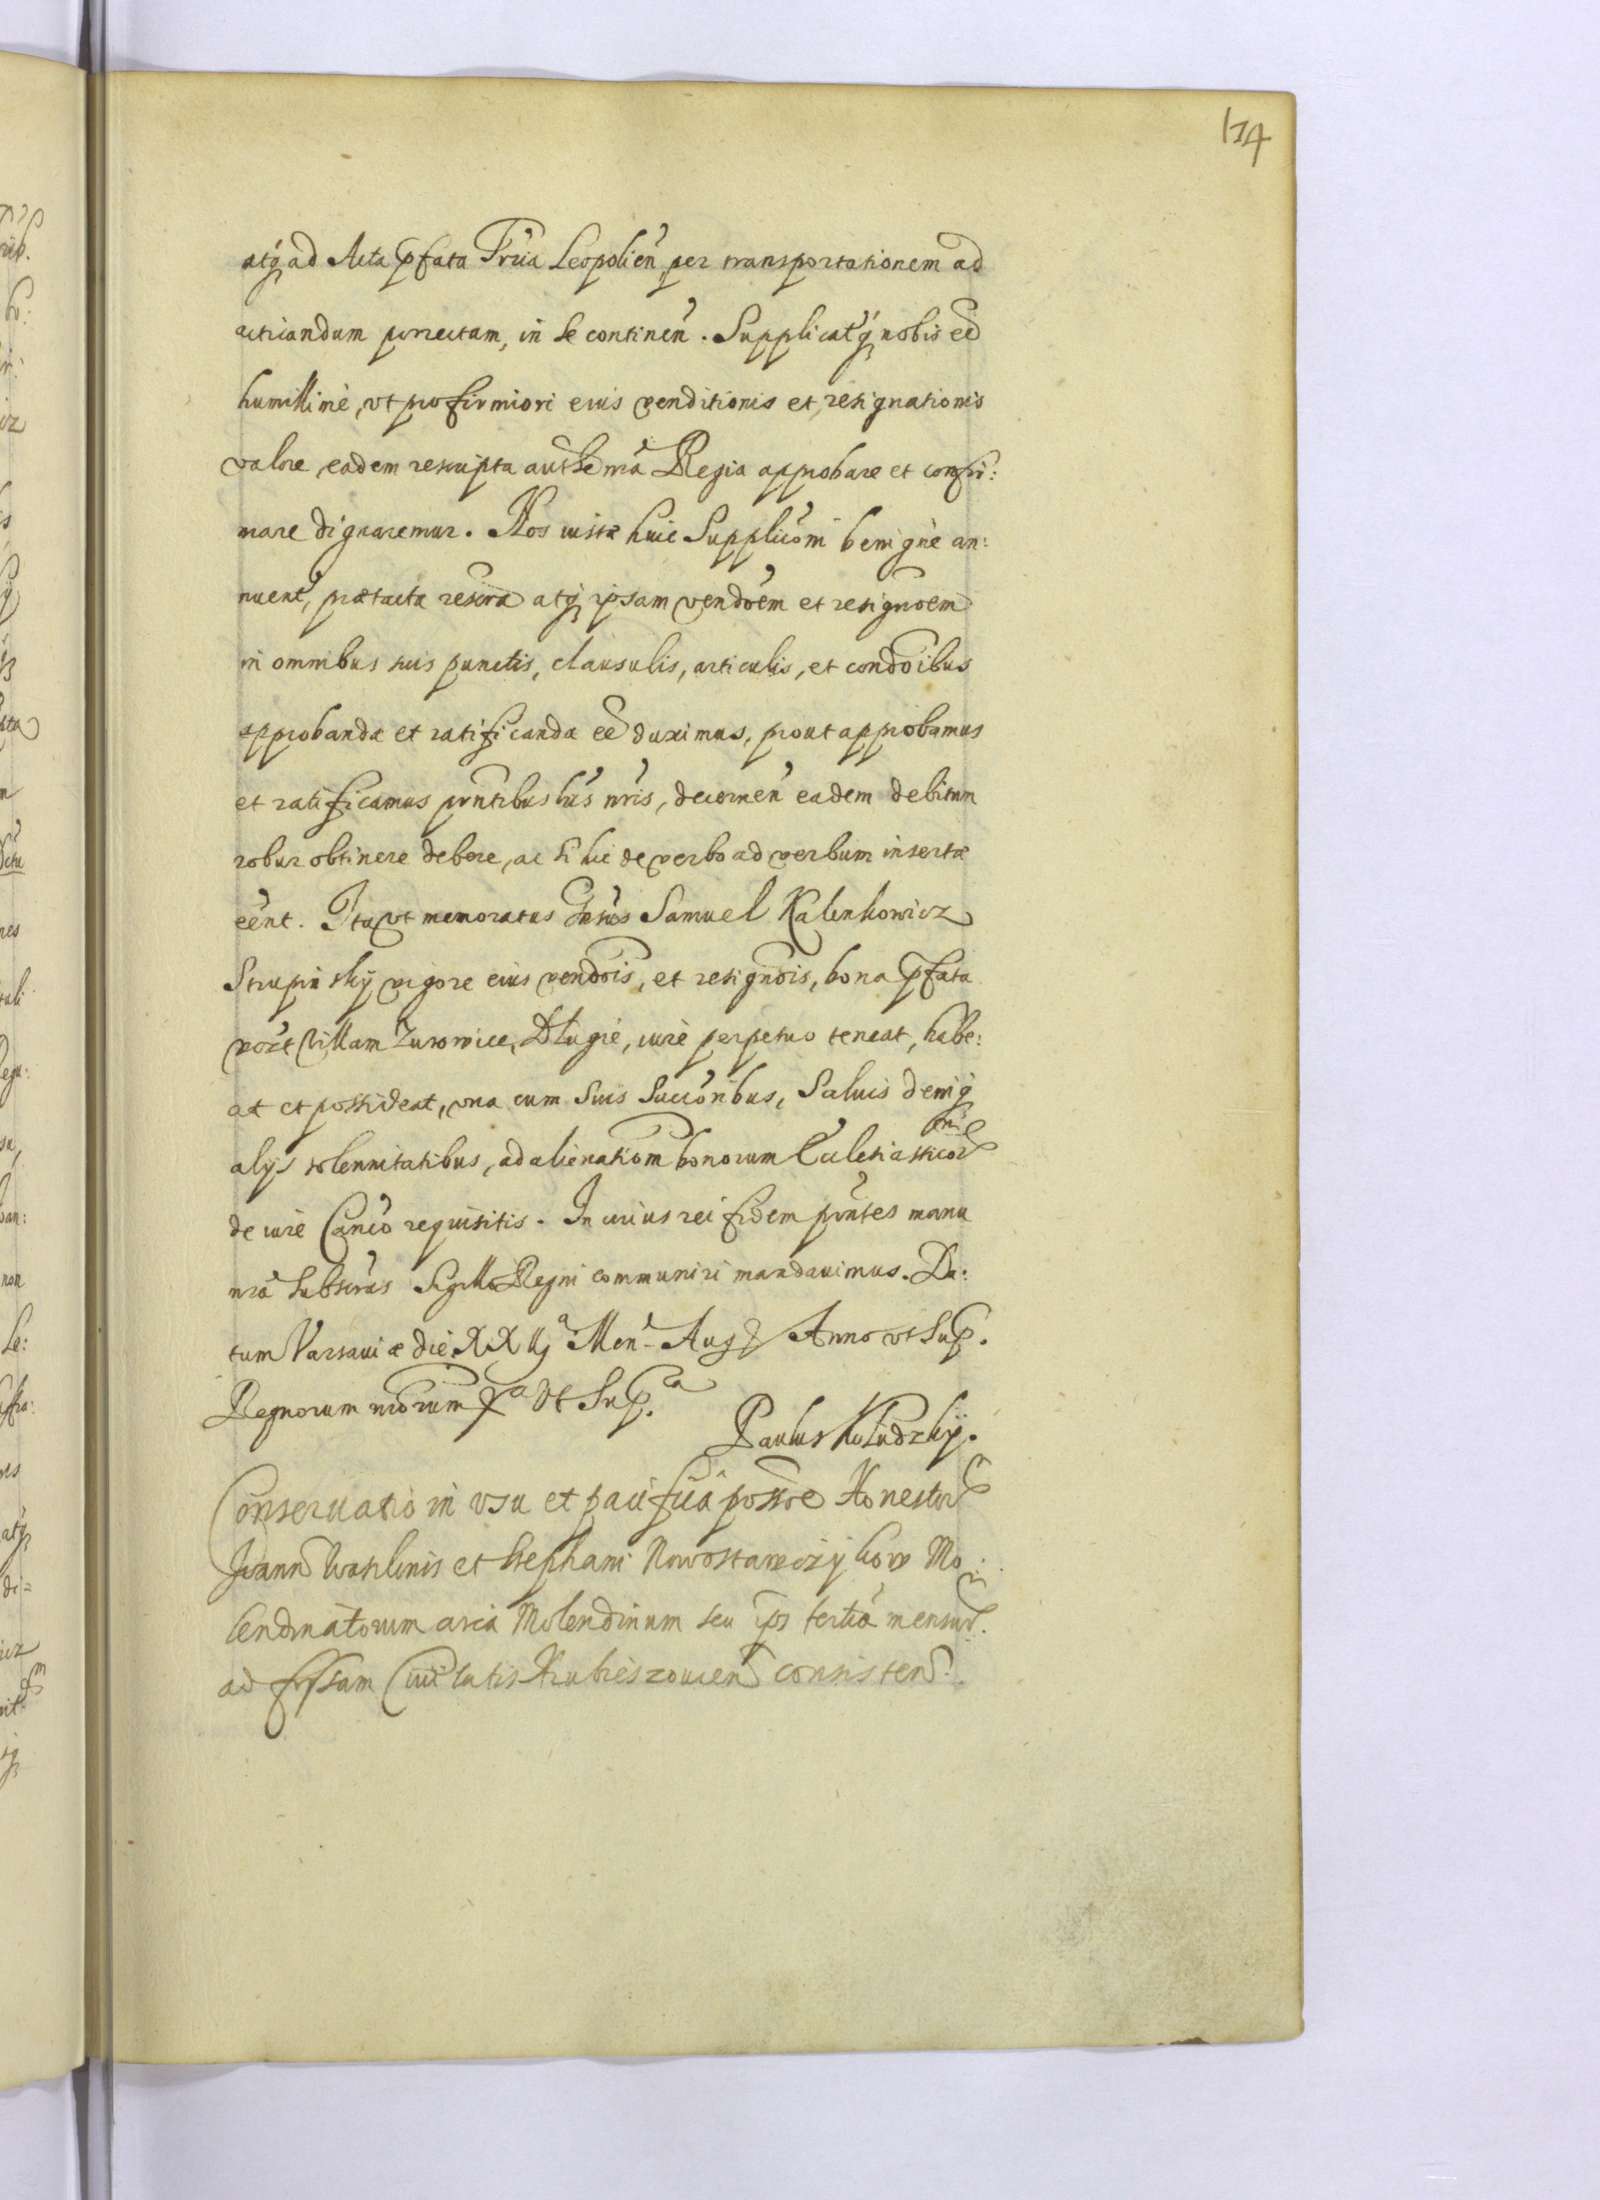 174
atq ad Acta pfata Trria Leopolien per transportationem ad
acticandum porrectam, in se continen. Supplicatq nobis eē
humillimè, vt pro firmiori eius venditionis et resignationis
valore, eadem rescripta autthē nrā Regia approbare et confir:
mare dignaremur. Nos iustæ huic Supplicōni benignè an:
nuent, prætacta rescrā atq ipsam vendōem et resignōem
in omnibus suis punctis, clausulis, articulis, et condōibus
approbanda et ratificanda eē duximus, prout approbamus
et ratificamus pntibus lris nris, decernen eadem debitum
robur obtinere debere, ac si hic de verbo ad verbum insertæ
eēnt. Ita vt memoratus Gnsus Samuel Kalenkowicz
Strupinskÿ vigore eius vendōis, et resignōis, bona pfata
Villam Zurowice, Dlugie, iure perpetuo teneat, habe:
at et possideat, vna cum Suis Succōribus, Saluis deniq
alijs solennitatibus, ad alienationem bonorum Ecclesiasticor
de iure Canēo requisitis. In cuius rei fidem pntes manu
nrā Subscras Sigillo Regni communiri mandauimus. Da:
tum Varsauiæ die XXIIJ Men. Aug Anno vt Sup.
Regnorum nrorum Xa Vt Sup.a
Paulus Koludzkÿ.
Conseruatio in vsu et pacifica possōe Honestor
Joann Wasilinis et Stephani Nowostawczykow Mo:
lendinatorum circa Molendinum seu ips tertiā mensur.
ad fossam Ciuitatis Hrubieszouien consisten.